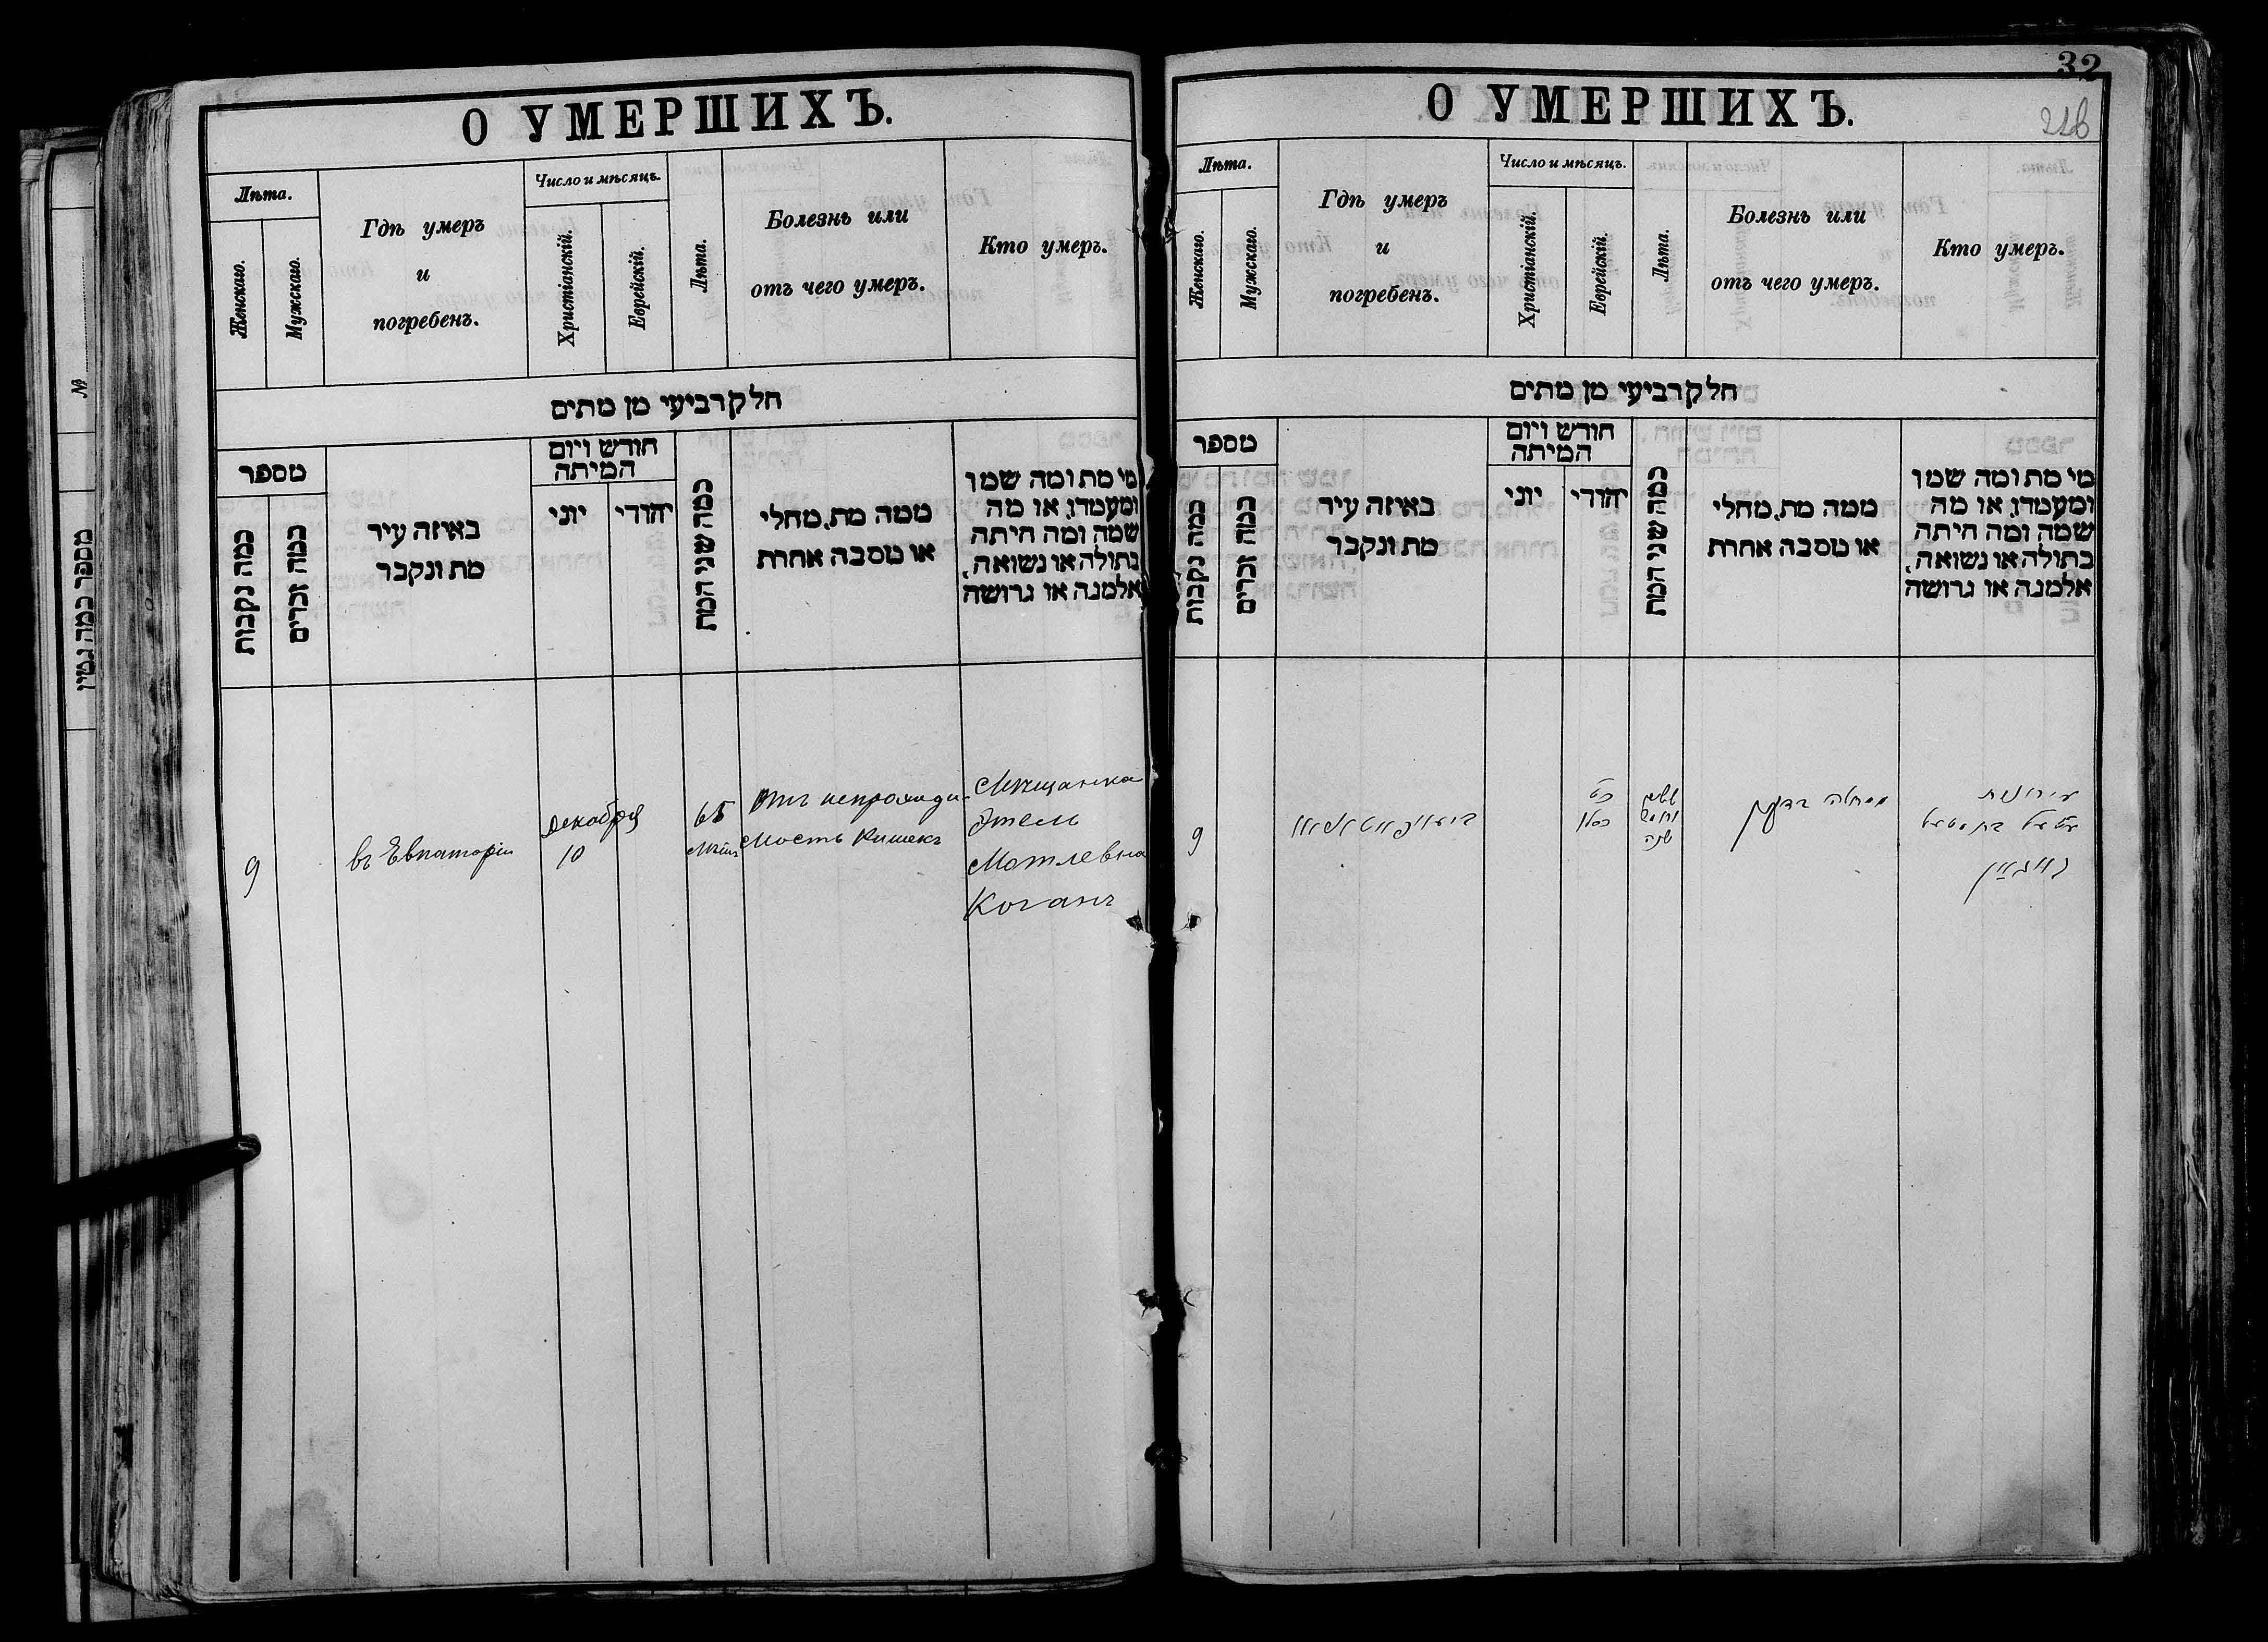 О УМЕРШИХЪ.
Лѣта.
Женскаго.
Мужскаго.
Гдѣ умеръ
и
погребенъ.
Число и мѣсяцъ.
Христіанскій.
Еврейскій.
Лѣта.
Болезнь или
отъ чего умеръ.
Кто умеръ.
חלק רביעי מן מתים
מספר
כמה נקבות
כמה זכרים
באיזה עיר
מת ונקבר
חודש ויום
המיתה
יוני
יהודי
כמה שני המת
ממה מת, מחלי
או מסבה אחרת
מי מת ומה שמו
ומעמדו, או מה
שמה ומה היתה
בתולה או נשואה,
אלמנה או גרושה
9
въ Евпаторіи
Декабря
10
65
лѣтъ
Отъ непроходи-
мость Кишекъ
Мѣщанка
Этель
Мотлевна
Коганъ
32
О УМЕРШИХЪ.
Лѣта.
Женскаго.
Мужскаго.
Гдѣ умеръ
и
погребенъ.
Число и мѣсяцъ.
Христіанскій.
Еврейскій.
Лѣта.
Болезнь или
отъ чего умеръ.
Кто умеръ.
חלק רביעי מן מתים
מספר
כמה נקבות
כמה זכרים
באיזה עיר
מת ונקבר
חודש ויום
המיתה
יוני
יהודי
כמה שני המת
ממה מת, מחלי
או מסבה אחרת
מי מת ומה שמו
ומעמדו, או מה
שמה ומה היתה
בתולה או נשואה,
אלמנה או גרושה
9
כסלו
שנה
№
מספר כמה גטין